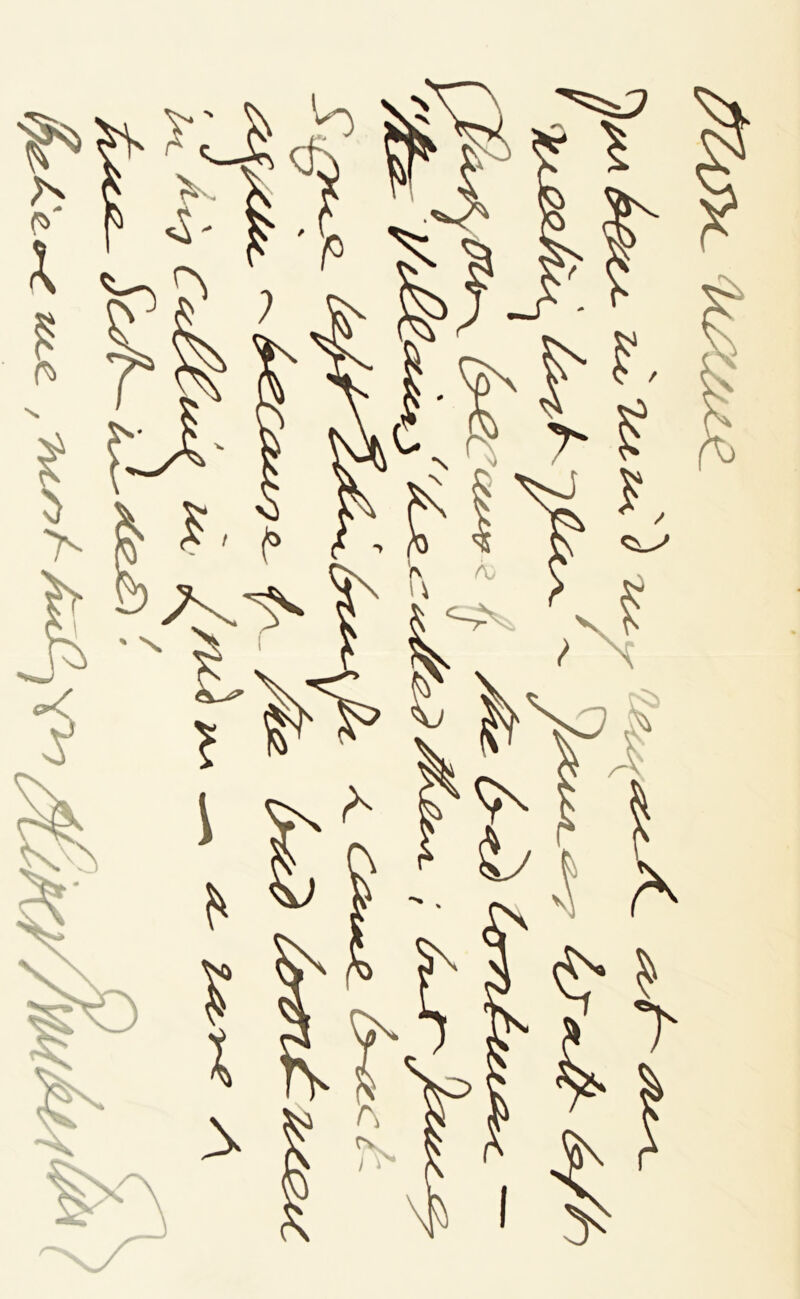 own name
You bear in mind my remark at our
meeting last year – James Watt left
Glasgow because of the bad workman –
"the Villains" he called them; but James
Syme left Edinburgh & came back
again – because of the bad workmen
in his calling in London – a rare &
true Scot indeed!
Believe me, most truly yrs